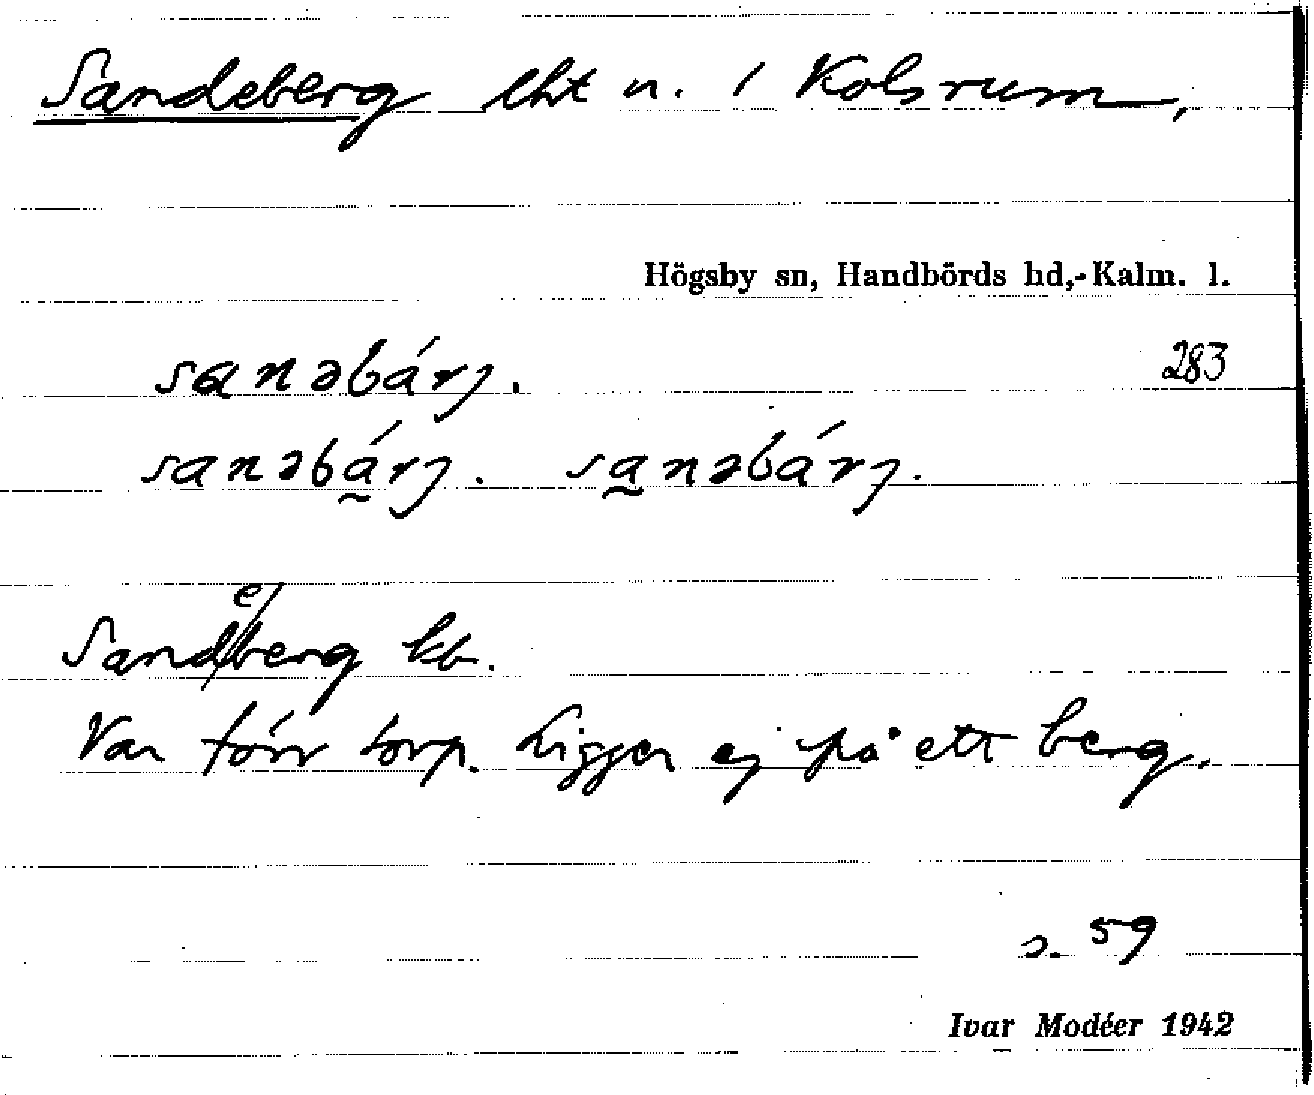 Sandeberg lht u. / Kolsrum,
Högsby sn, Handbörds hd, Kalm. l.
sanəbárj. 283
sanəbá̰rj. sa̰nəbárj.
Sandeberg kb.
Var förr torp. Ligger ej på ett berg.
s. 59
Ivar Modéer 1942